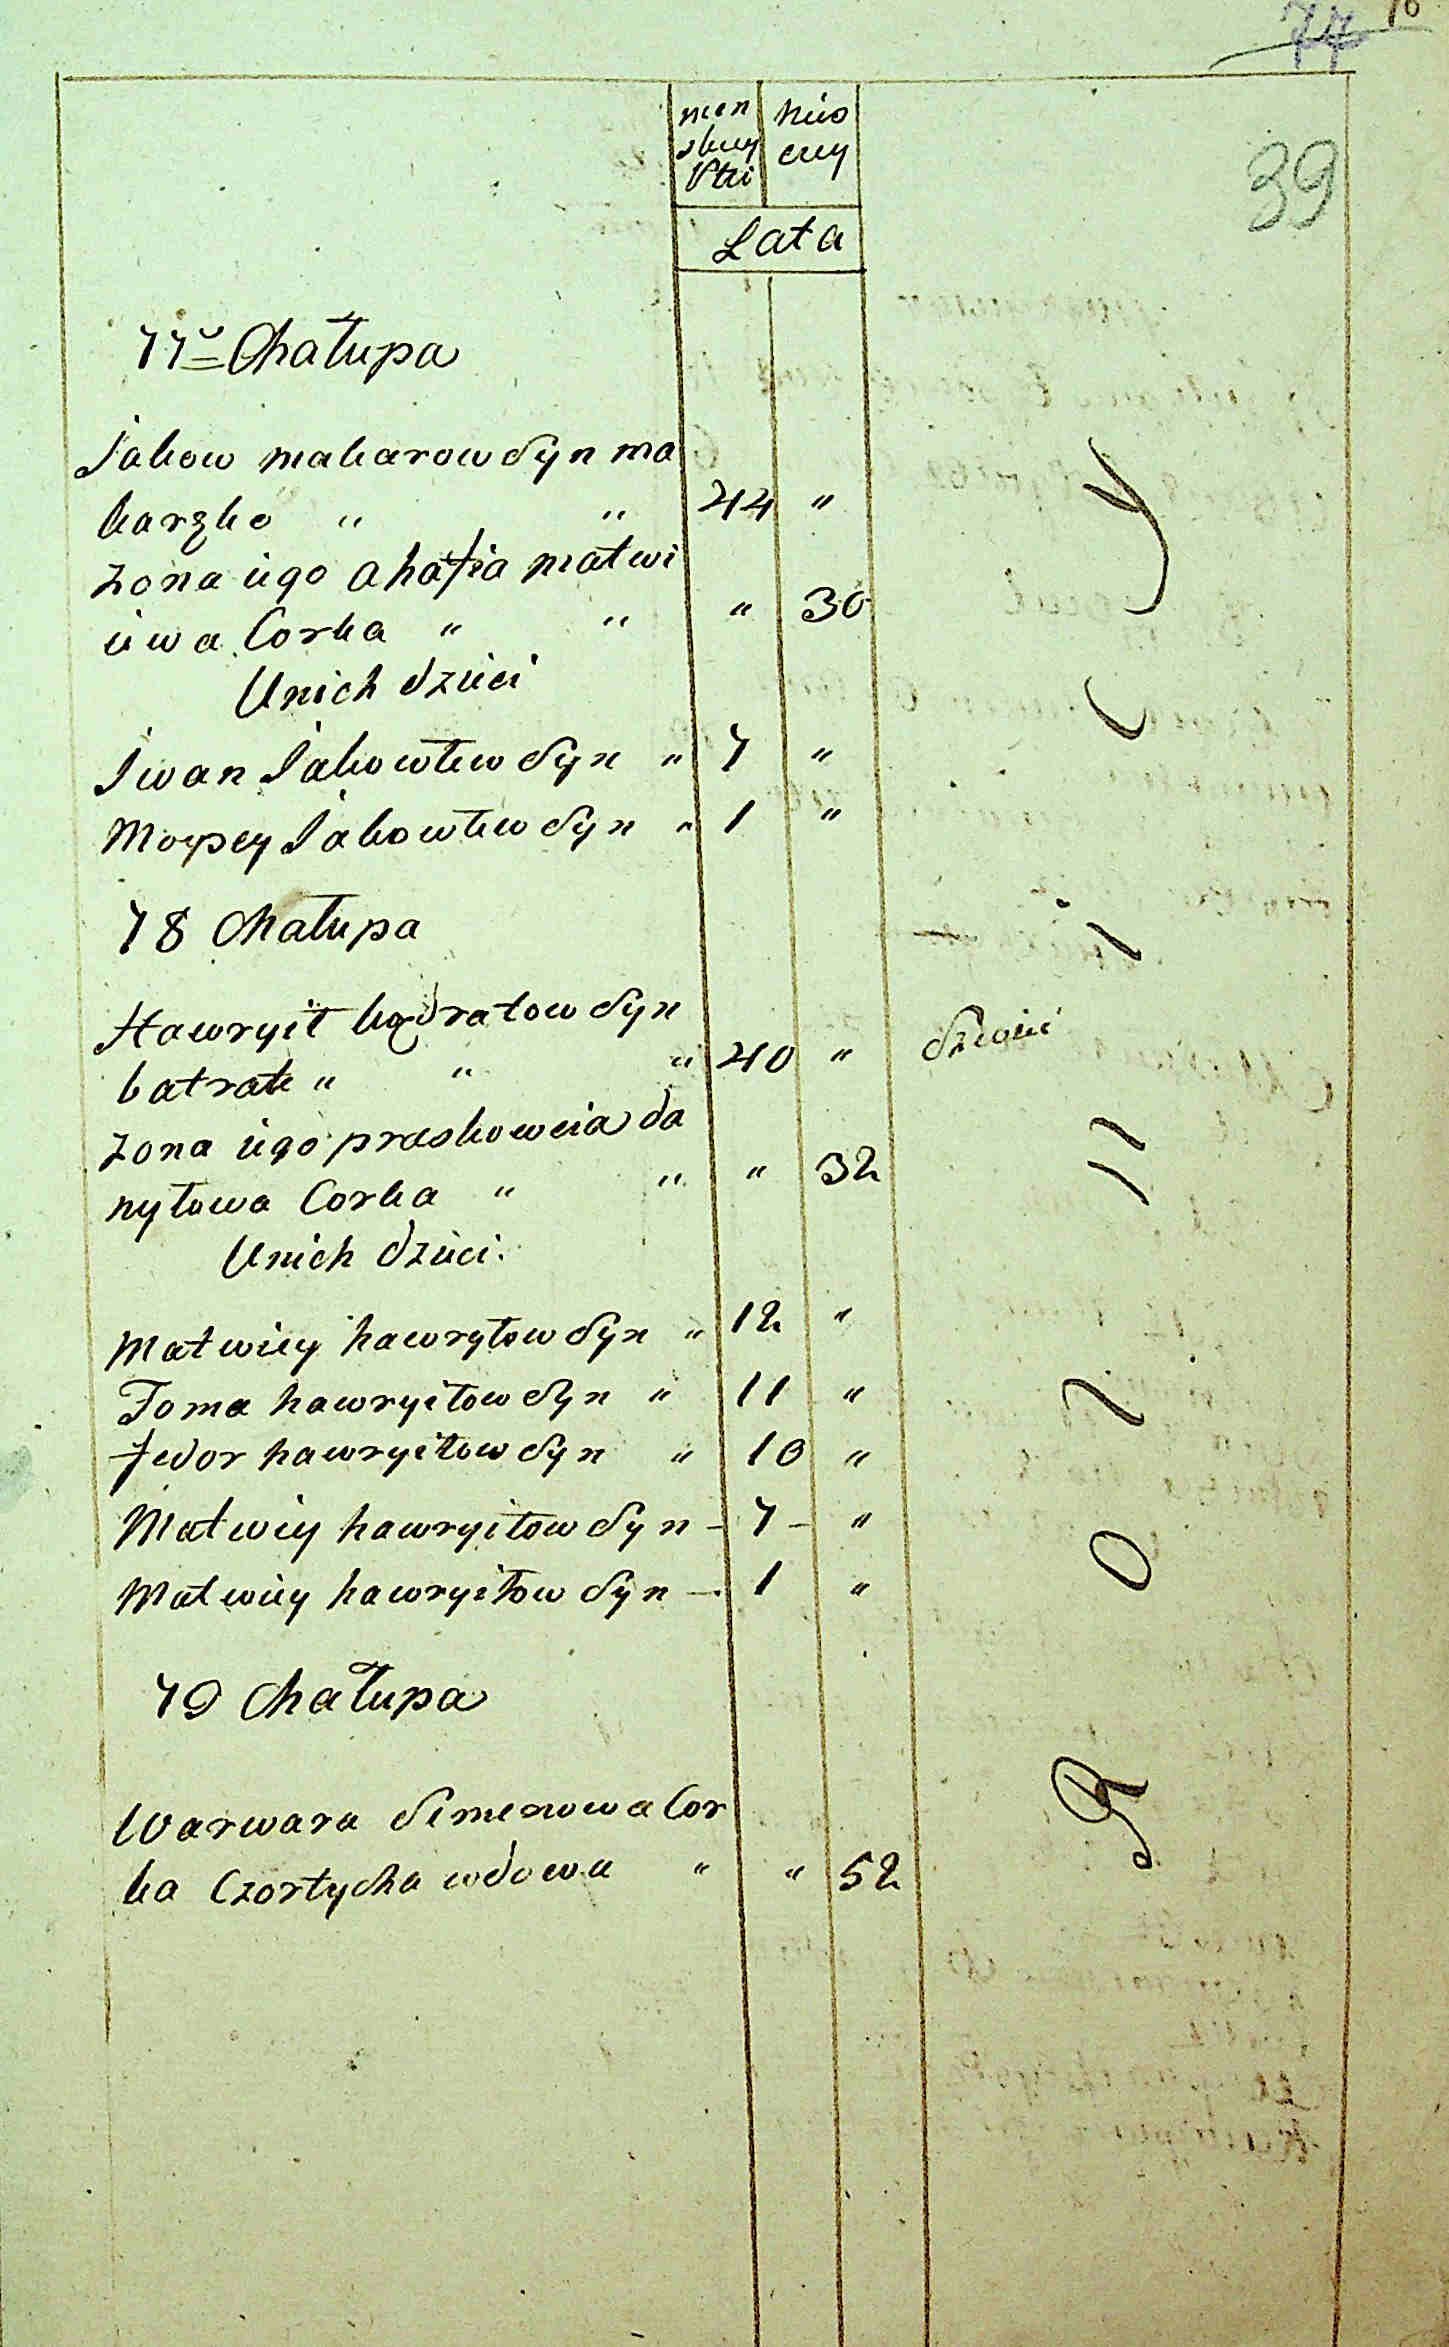 77
39
men skuy Płci
nieo cuy
Lata
77 Chałupa
Jakow makarow Syn ma
karzko " " 44 "
zona iego ahafia matwi
iwa Corka " " " 30
Unich dzieci
Iwan Jakowlew Syn " 7 "
Moysey Jakowlew Syn " 1 "
78 Chałupa
Hawryił Syn
batrak " " " 40 "
zona iego praskoweia da
nyłowa Corka " " " 32
Unich dzieci
Matwiey hawryłow Syn " 12 "
Foma hawryiłow Syn " 11 "
fedor hawryiłow Syn " 10 "
Matwiy hawryiłow Syn - 7 - "
Matwiey hawryiłow Syn - 1 "
79 Chałupa
Warwara Semenowa Cor
ka Czortycha wdowa " " 52